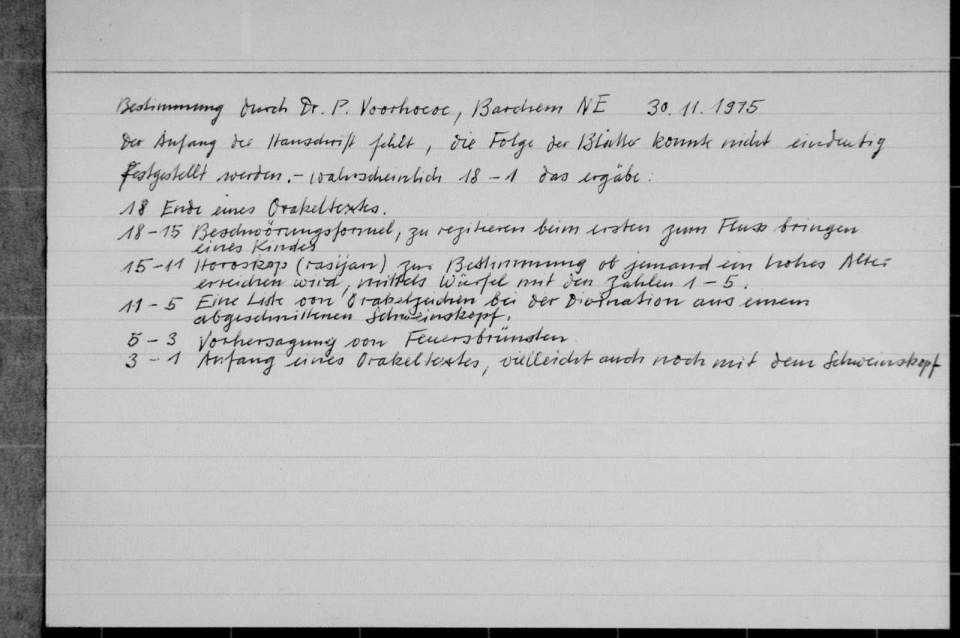 Bestimmung durch Dr. P. Voorhoeve, Barchem NE 30.11.1975
Der Anfang der Hanschrift fehlt, die Folge der Blätter konnte nicht eindeutig
festgestellt werden. - wahrscheinlich 18 - 1 das ergäbe:
18 Ende eines Orakeltextes.
18 - 15 Beschwörungsformel, zu rezitieren beim ersten zum Fluss bringen
eines Kindes
15 - 11 Horoskop (rasijan) zur Bestimmung ob jemand ein hohes Alter
erreichen wird, mittels Würfel mit den Zahlen 1 - 5.
11 - 5 Eine Liste von Orakelzeichen bei der Divination aus einem
abgeschnittenen Schweinskopf.
5 - 3 Vorhersagung von Feuersbrünsten
3 - 1 Anfang eines Orakeltextes, vielleicht auch noch mit dem Schweinskopf